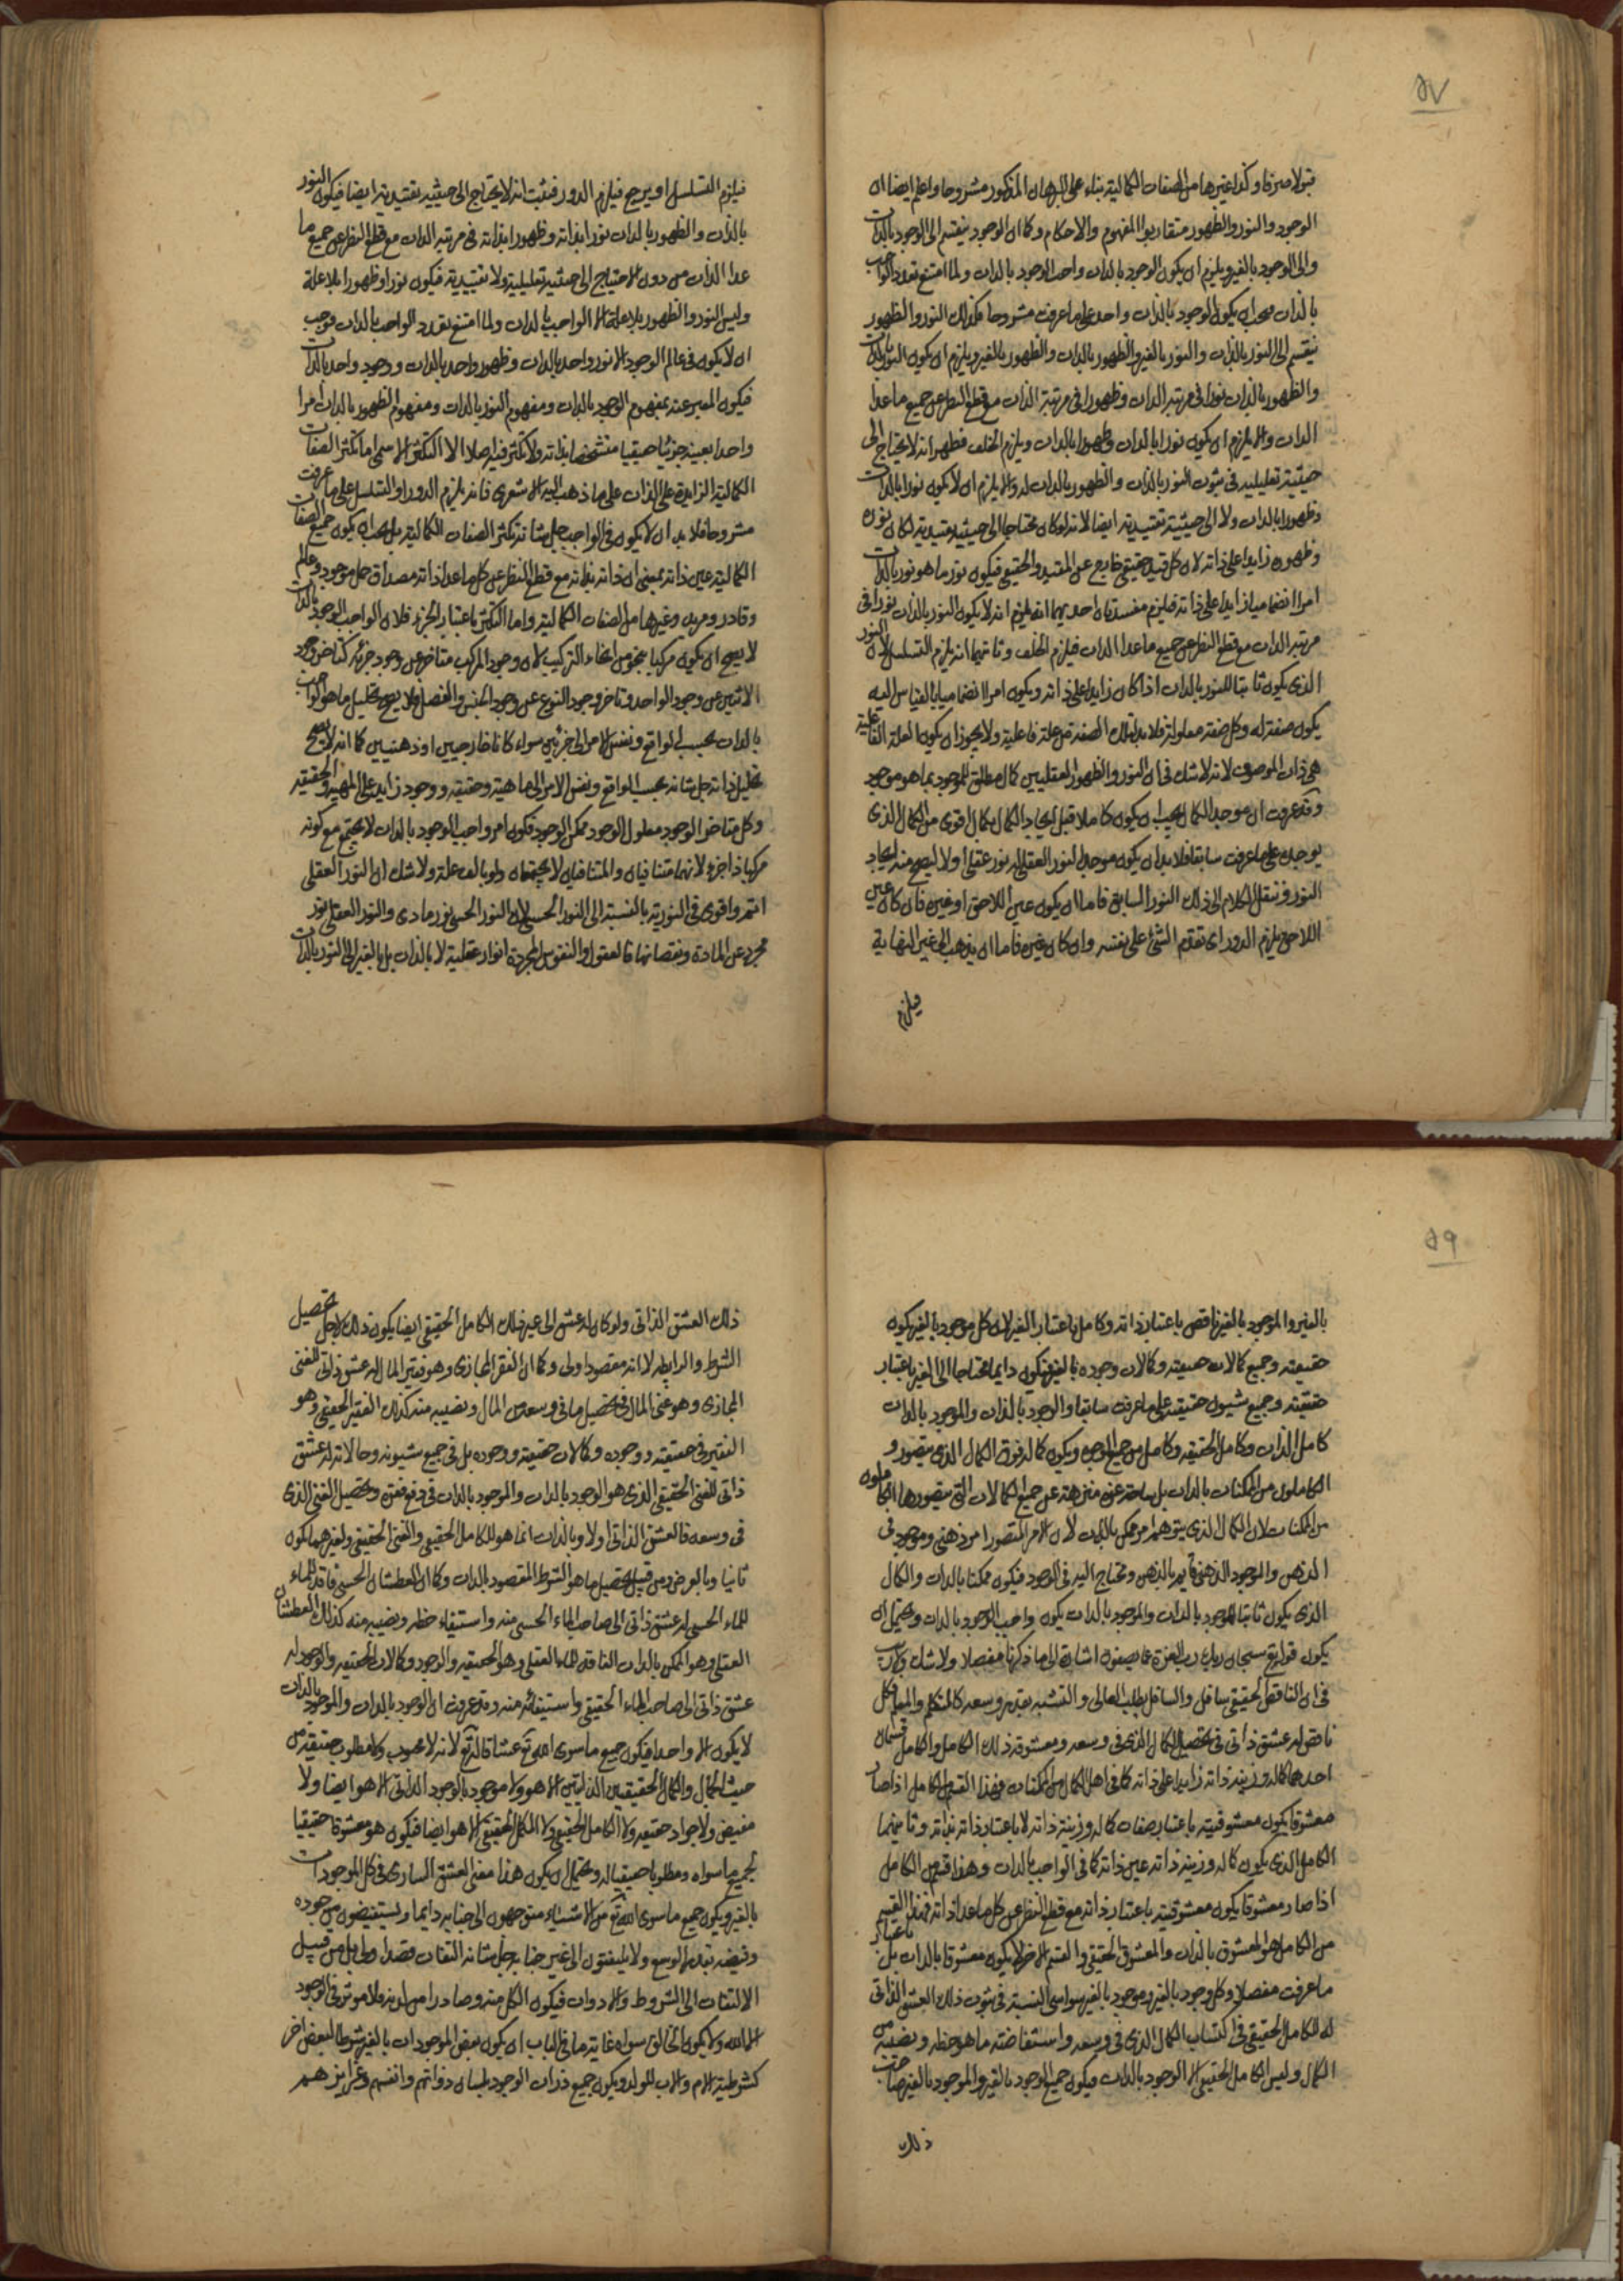 ۵۷
قبولا صرفا وكذا غيرها من الصفات الكمالية بناء على البرهان المذكور مشروحا واعلم ايضا ان
الوجود والنور والظهور متقاربوا المفهوم والاحكام وكما ان الوجود ينقسم الى الوجود بالذات
والى الوجود بالغير ويلزم ان يكون الوجود بالذات واجب الوجود بالذات ولما امتنع تعدد الواجب
بالذات فيجب ان يكون الوجود بالذات واحدا على ما عرفت مشروحا فكذلك النور والظهور
ينقسم الى النور بالذات والنور بالغير والظهور بالذات والظهور بالغير ويلزم ان يكون النور بالذات
والظهور بالذات نورا في مرتبة الذات وظهورا في مرتبة الذات مع قطع النظر عن جميع ما عدا
الذات والا يلزم ان لا يكون نورا بالذات وظهورا بالذات ويلزم الخلف فظهر انه لا يحتاج الى
حيثية تعليلية في ثبوت النور بالذات والظهور بالذات له والا يلزم ان لا يكون نورا بالذات
وظهورا بالذات ولا الى حيثية تقييدية ايضا لانه لو كان محتاجا الى حيثية تقييدية لكان نوره
وظهوره زايدا على ذاته لان كل قيد حقيقي خارج عن المقيد والحقيقي فيكون نور ما هو نور بالذات
امرا انضماميا زايدا على ذاته فيلزم مفسدتان احديهما انه يلزم انه لا يكون النور بالذات نورا في
مرتبة الذات مع قطع النظر عن جميع ما عدا الذات فيلزم الخلف وثانيهما انه يلزم التسلسل لان النور
الذي يكون ثابتا للنور بالذات اذا كان زايدا على ذاته ويكون امرا انضماميا بالقياس اليه
يكون صفة له وكل صفة معلولة فلا بد لتلك الصفة من علة فاعلية ولا يجوز ان يكون العلة الفاعلية
هي ذات الموصوف لانه لا شك في ان النور والظهور العقليين كمال مطلق للموجود بما هو موجود
وقد عرفت ان موجد الكمال يجب ان يكون كاملا قبل ايجاد الكمال بكمال اقوى من الكمال الذي
يوجده على ما عرفت سابقا فلا بد ان يكون موجد النور العقلي له نور عقلي اولا ليصح منه ايجاد
النور فننقل الكلام الى ذلك النور السابق فاما ان يكون عين اللاحق او غيره فان كان عين
اللاحق يلزم الدور اي تقدم الشئ على نفسه وان كان غيره فاما ان يذهب الى غير النهاية
فيلزم
فيلزم التسلسل او يرجع فيلزم الدور فثبت انه لا يحتاج الى حيثية تقييدية ايضا فيكون النور
بالذات والظهور بالذات نورا بذاته وظهورا بذاته في مرتبة الذات مع قطع النظر عن جميع ما
عدا الذات من دون الاحتياج الى حيثية تعليلية ولا تقييدية فيكون نورا وظهورا بلا علة
وليس النور والظهور بلا علة الا الواجب بالذات ولما امتنع تعدد الواجب بالذات فوجب
ان لا يكون في عالم الوجود الا نور واحد بالذات وظهور واحد بالذات ووجود واحد بالذات
فيكون المعبر عنه بمفهوم الوجود بالذات ومفهوم النور بالذات ومفهوم الظهور بالذات امرا
واحدا بعينه جزئيا حقيقيا متشخصا بذاته ولا تكثر فيه اصلا الا التكثر الاسمي اما تكثر الصفات
الكمالية الزايدة على الذات على ما ذهب اليه الاشعري فانه يلزم الدور او التسلسل على ما عرفت
مشروحا فلا بد ان لا يكون في الواجب جل شانه تكثر الصفات الكمالية بل يجب ان يكون جميع الصفات
الكمالية عين ذاته بمعنى ان ذاته بذاته مع قطع النظر عن كل ما عدا ذاته مصداق حمل موجود وعالم
وقادر ومريد وغيرها من الصفات الكمالية واما التكثر باعتبار الجزء فلان الواجب الوجود بالذات
لا يصح ان يكون مركبا بنحو من انحاء التركيب لان وجود المركب متاخر عن وجود جزئه كتاخر وجود
الاثنين عن وجود الواحد وتاخر وجود النوع عن وجود الجنس والفصل فلا يصح تحليل ما هو الواجب
بالذات بحسب الواقع ونفس الامر الى جزئين سواء كانا خارجيين او ذهنيين كما انه لا يصح
تحليل ذاته جل شانه بحسب الواقع ونفس الامر الى ماهية وحقيقة ووجود زايد على المهية والحقيقة
وكل متاخر الوجود معلول الوجود ممكن الوجود فكونه امر واجب الوجود بالذات لا يجتمع مع كونه
مركبا ذا جزء لانهما متنافيان والمتنافيان لا يجتمعان ولو بالف علة ولا شك ان النور العقلي
اتم واقوى في النورية بالنسبة الى النور الحسي لان النور الحسي نور مادي والنور العقلي نور
مجرد عن المادة ونقصانها فالعقول والنفوس المجردة انوار عقلية لا بالذات بل بالغير الى النور بالذات
۵۹
بالغير والموجود بالغير ناقص باعتبار ذاته وكامل باعتبار الغير لان كل موجود بالغير يكون
حقيقته وجميع كمالات حقيقته وكمالات وجوده بالغير فيكون دايما محتاجا الى الغير باعتبار
حقيقته وجميع شيون حقيقته على ما عرفت سابقا والوجود بالذات والموجود بالذات
كامل الذات وكامل الحقيقة وكامل من جميع الوجوه ويكون كماله فوق الكمال الذي يتصوره
الكاملون من الممكنات بالذات بل ساحة عزه منزهة عن جميع الكمالات التي يتصورها الكاملون
من الممكنات لان الكمال الذي يتوهم امر ممكن بالذات لان الامر المتصور امر ذهني وموجود في
الذهن والموجود الذهني قايم بالذهن ومحتاج اليه في الوجود فيكون ممكنا بالذات والكمال
الذي يكون ثابتا للوجود بالذات والموجود بالذات يكون واجب الوجود بالذات ويحتمل ان
يكون قوله تع سبحان ربك رب العزة عما يصفون اشارة الى ما ذكرنا مفصلا ولا شك
في ان الناقص الحقيقي سافل والسافل يطلب العالي والتشبه بقدر وسعه كالمتكلم والمعلم فكل
ناقص له عشق ذاتي في تحصيل الكمال الذي في وسعه ومعشوقه ذلك الكامل والكامل قسمان
احدهما كماله وزينة ذاته زايدا على ذاته كما في اهل الكمال من الممكنات فهذا القسم من الكامل اذا صار
معشوقا يكون معشوقيته باعتبار صفات كماله وزينة ذاته لا باعتبار ذاته بذاته وثانيهما
الكامل الذي يكون كماله وزينة ذاته عين ذاته كما في الواجب بالذات وهذا القسم من الكامل
اذا صار معشوقا يكون معشوقيته باعتبار ذاته مع قطع النظر عن كل ما عدا ذاته فهذا القسم
من الكامل هو المعشوق بالذات والمعشوق الحقيقي والقسم الاخر لا يكون معشوقا بالذات بل باعتبار
ما عرفت مفصلا وكل وجود بالغير وموجود بالغير سواسي النسبة في ثبوت ذلك العشق الذاتي
له للكامل الحقيقي في اكتساب الكمال الذي في وسعه واستفاضته ما هو حظه ونصيبه من
الكمال وليس الكامل الحقيقي الا الوجود بالذات فيكون جميع الوجود بالغير والموجود بالغير صاحب
ذلك
ذلك العشق الذاتي ولو كان له عشق الى غير ذلك الكامل الحقيقي ايضا يكون ذلك لاجل تحصيل
الشرط والرابطه لا انه مقصود اولى وكما ان الفقير المجازي وهو فقير المال له عشق ذاتي للغنى
المجازي وهو غنى المال في تحصيل ما في وسعه من المال ونصيبه منه كذلك الفقير الحقيقي وهو
الفقير في حقيقته ووجوده وكمالات حقيقته ووجوده بل في جميع شيونه وحالاته له عشق
ذاتي للغنى الحقيقي الذي هو الوجود بالذات والموجود بالذات في دفع فقره وتحصيل الغنى الذي
في وسعه فالعشق الذاتي اولا وبالذات انما هو للكامل الحقيقي والغنى الحقيقي ولغيرهما يكون
ثانيا وبالعرض ومن قبيل تحصيل ما هو الشرط المقصود بالذات وكما ان العطشان الحسي فاقد للماء
للماء الحسي له عشق ذاتي الى صاحب الماء الحسي منه واستيفاء حظه ونصيبه منه كذلك العطشان
العقلي وهو الممكن بالذات الفاقد للماء العقلي وهو الحقيقة والوجود وكمالات الحقيقة والوجود له
عشق ذاتي الى صاحب الماء الحقيقي واستيفائه منه وقد عرفت ان الوجود بالذات والموجود بالذات
لا يكون الا واحدا فيكون جميع ما سوى الله تع عشاقا له تع لانه لا محبوب ولا مطلوب حقيقة من
حيث الجمال والكمال الحقيقيين الذاتيين الا هو ولا موجود بالوجود الذاتي الا هو ايضا ولا
مفيض ولا جواد حقيقة ولا الكامل الحقيقي ولا المكمل الحقيقي الا هو ايضا فيكون هو معشوقا حقيقيا
لجميع ما سواه ومطلوبا حقيقيا له ويحتمل ان يكون هذا معنى العشق الساري في كل الموجودات
بالغير ويكون جميع ما سوى الله تع من الاشياء متوجهون الى جنابه دايما ويستفيضون من جوده
وفيضه بقدر الوسع ولا يلتفتون الى غير جنابه جل شانه التفات قصدا اوليا بل من قبيل
الالتفات الى الشروط والادوات فيكون الكل منه وصادرا من لدنه ولا موثر في الوجود
الا الله ولا يكون الخالق سواه غاية ما في الباب ان يكون بعض الموجودات بالغير شرطا لبعض اخر
كشرطية الام والاب للولد ويكون جميع ذرات الوجود بلسان ذواتهم وانفسهم وغرايزهم